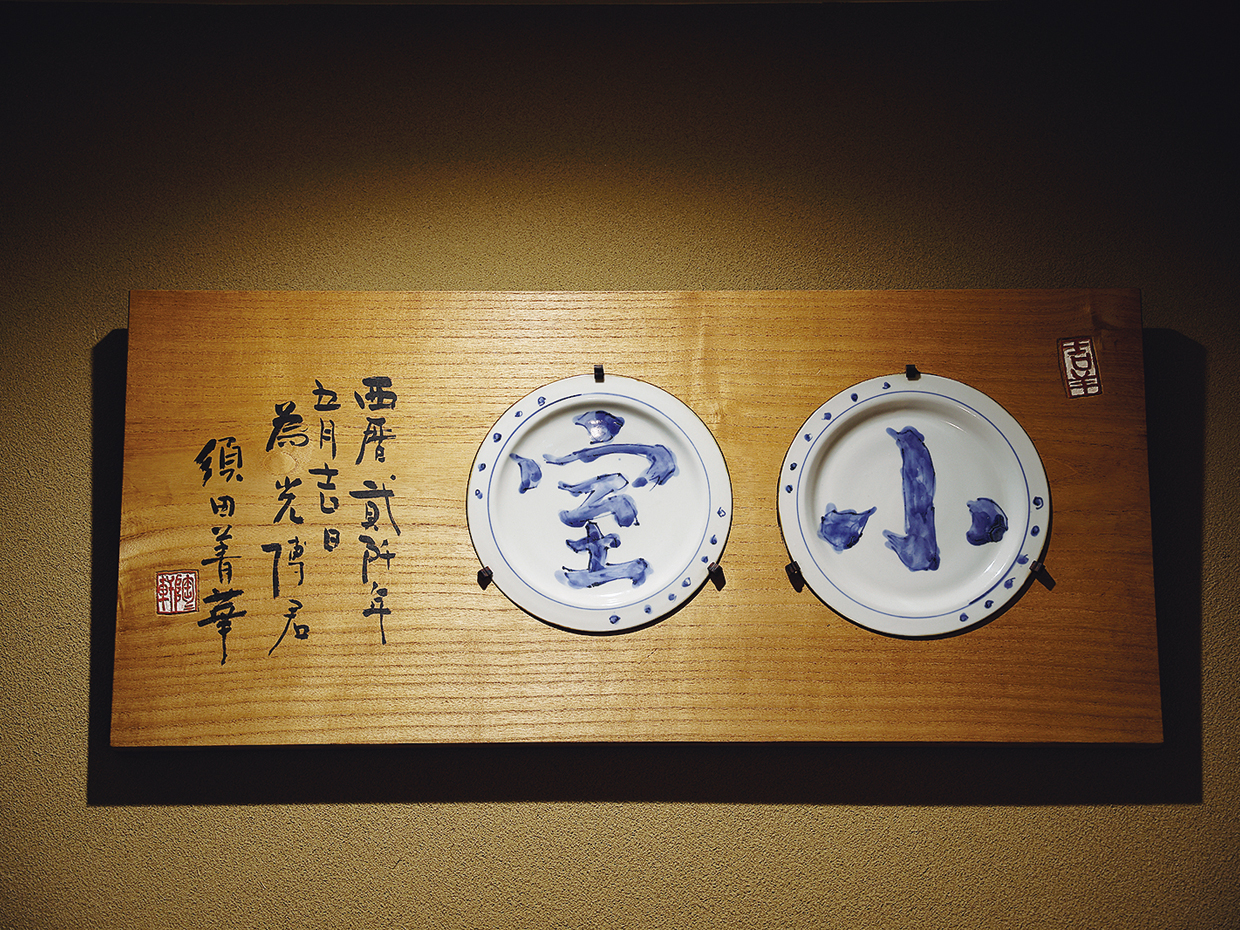 吉羊
小室
西暦貳阡年
五月吉日
為光博君
須田菁華